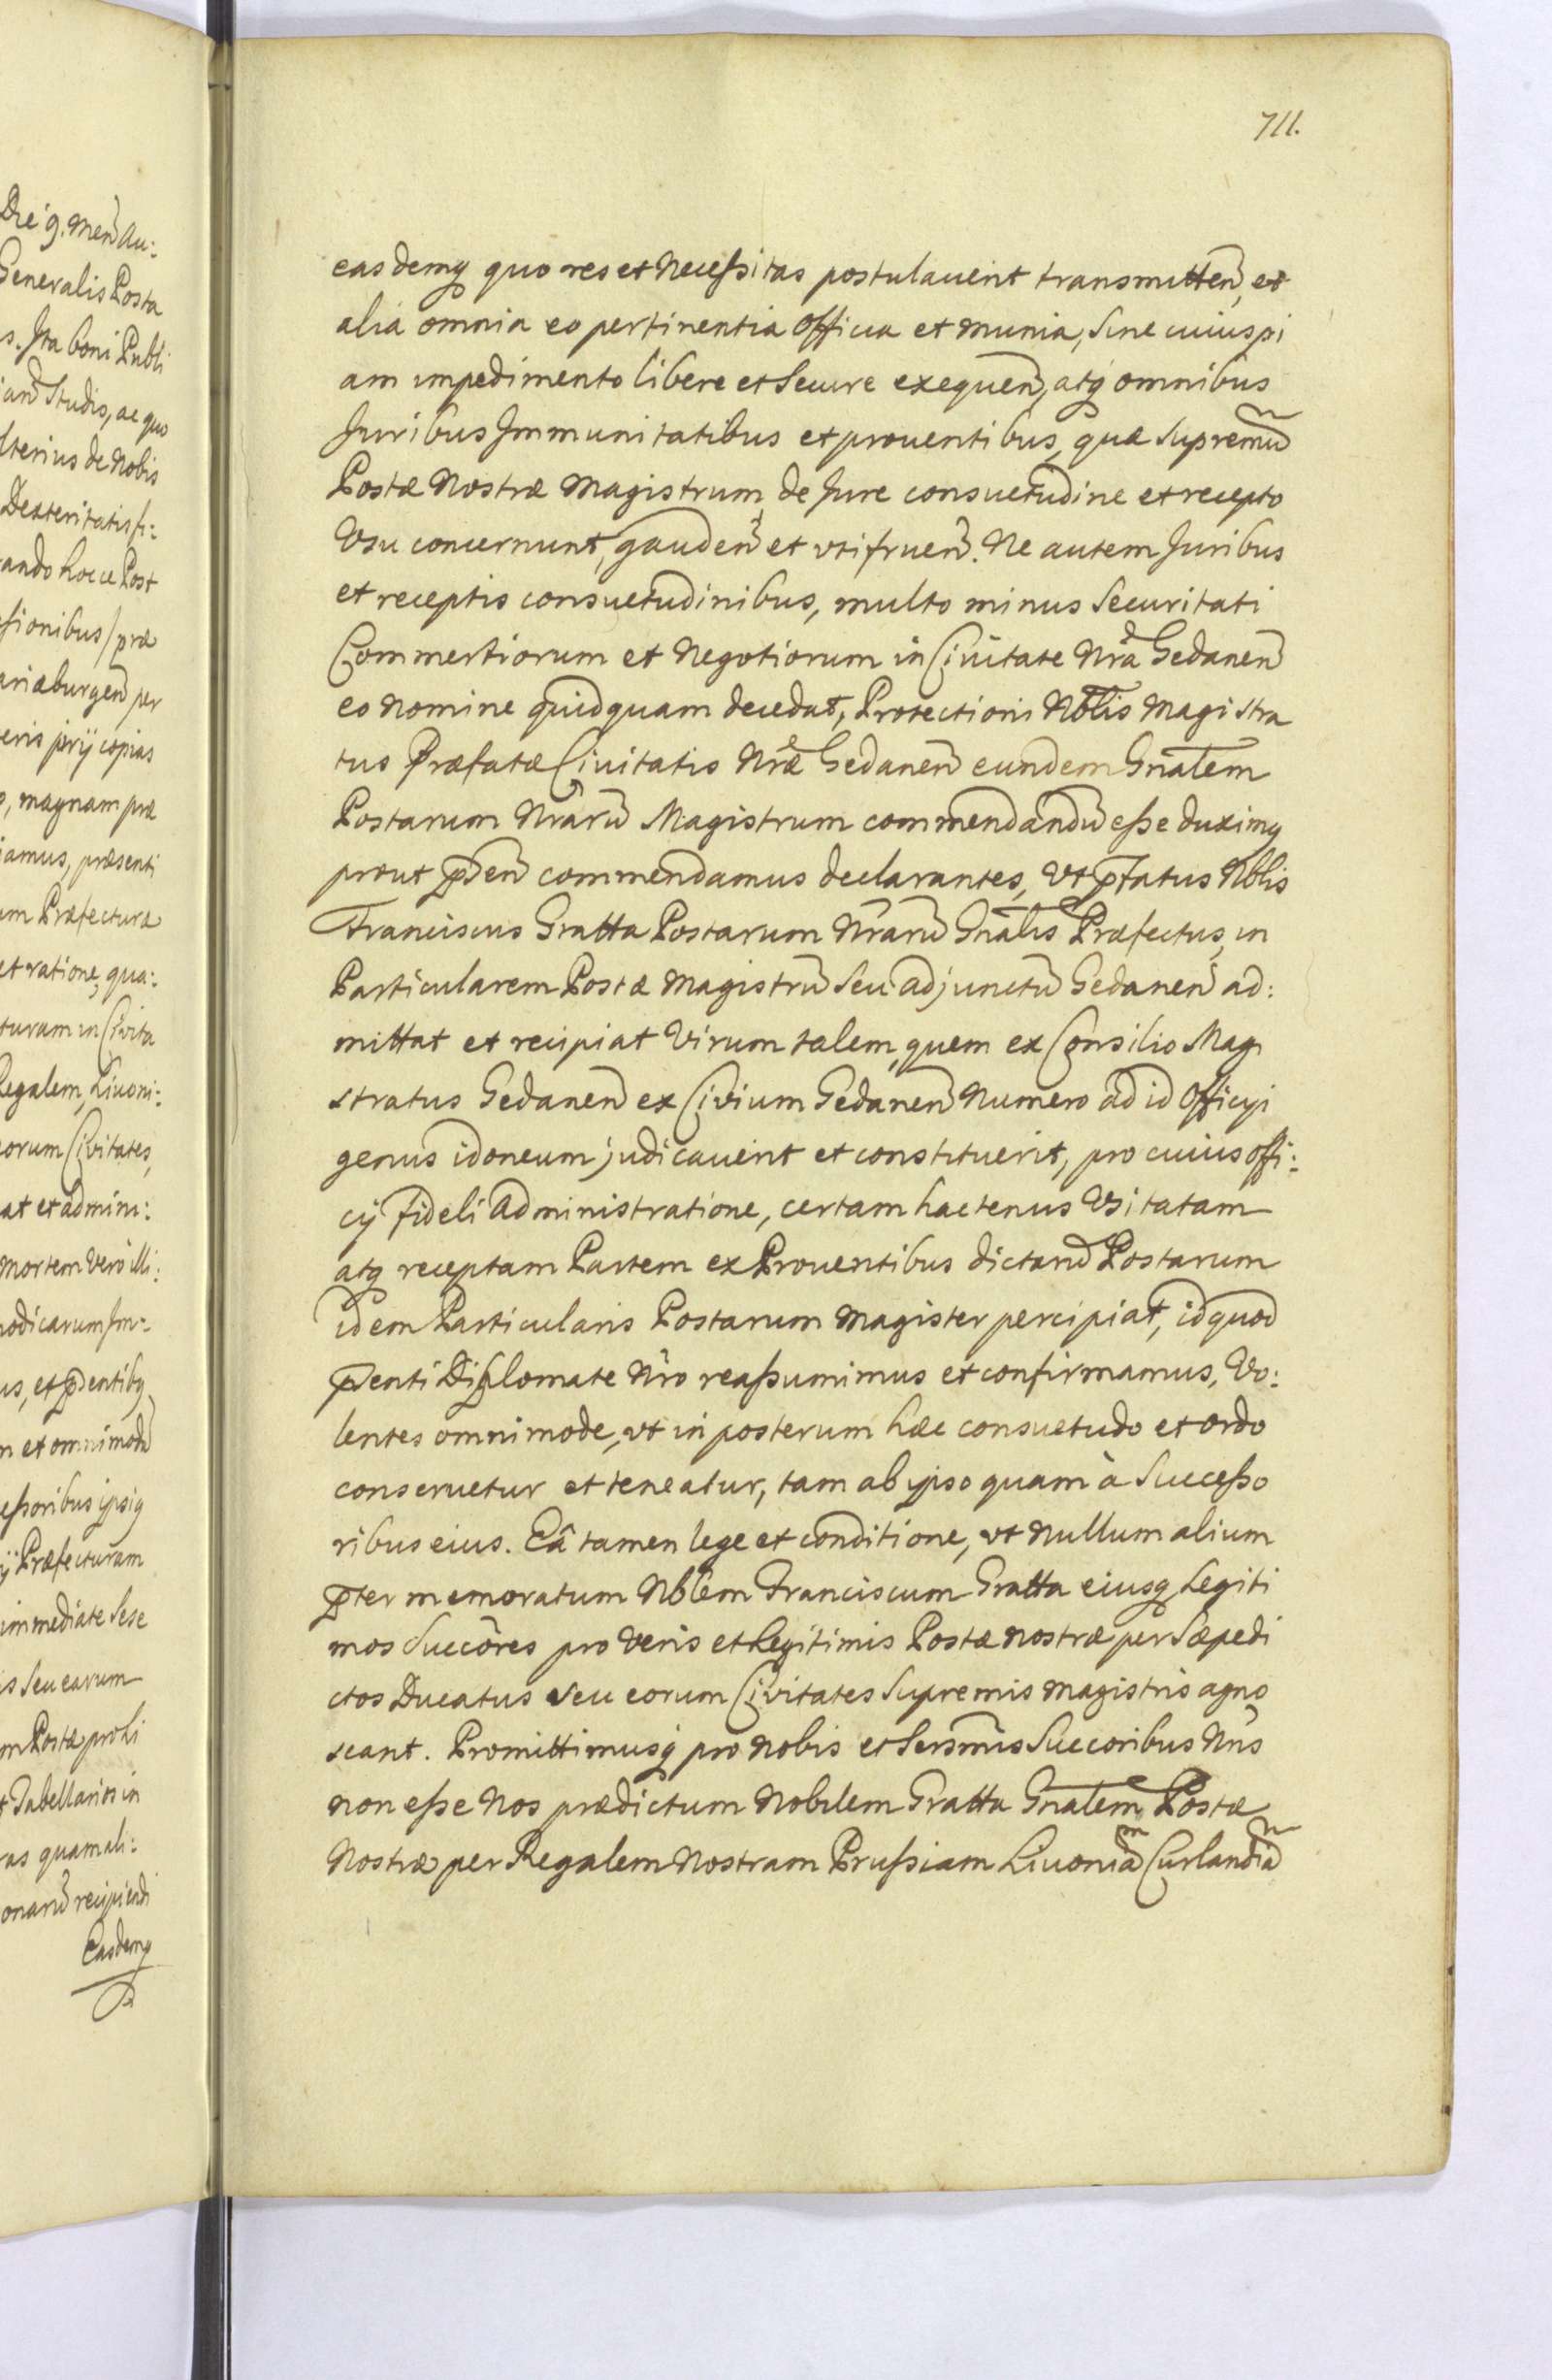 711.
Die 9. Men̄ Au:
Generalis Posta
s. Ita boni Publi
ian̄ Studis, ac quo
lterius de Nobis
Dexteritatis fi:
rando hocce Post
ssionibus / præ
ariæburgen̄ per
eris prij copias
o, magnam præ
iamus, præsenti
um Præfectura
et ratione, qua:
turam in Civita
Regalem, Livoni:
eorum Civitates,
at et admini:
mortem vero illi:
modicarum Im:
us, et p̄sentibq
m et omnimodā
essoribus ipsiq
ij Præfecturam
immediate Sese
is Seu earum
m Postæ prohi
t Tabellarios in
ras quam ali:
onarū recipiendi
Easdemq
easdemq quo res et Necessitas postulauerit transmitten̄, et
alia omnia eo pertinentia officia et munia, Sine cuiuspi
am impedimento libere et Secure exequen̄, atq omnibus
Juribus Immunitatibus et prouentibus, quæ Supremū
Postæ Nostræ Magistrum de Jure consuetudine et recepto
Vsu concernunt, gauden̄ et vtifruen̄. Ne autem Juribus
et receptis consuetudinibus, multo minus Securitati
Commertiorum et Negotiorum in Ciuitate Nrā Gedanen̄
eo nomine quidquam decedat, Protectioni Nōblis Magistra
tus Præfatæ Ciuitatis Nrǣ Gedanen̄ eundem Gnālem
Postarum Nrārū Magistrum commendandū esse duximq
prout p̄sen̄ commendamus declarantes, Vt p̄fatus Nōblis
Franciscus Gratta Postarum Nrārū Gnālis Præfectus, in
Particularem Postæ Magistrū Seu adjunctū Gedanen̄ ad:
mittat et recipiat Virum talem, quem ex Consilio Magi
stratus Gedanen̄ ex Civium Gedanen̄ Numero ad id Officyi
genus idoneum judicauerit et constituerit, pro cuius offi:
cij fideli administratione, certam hactenus Vsitatam
atq receptam Partem ex Prouentibus dictarū Postarum
idem Particularis Postarum Magister percipiat, id quod
p̄senti Diplomate Nrō reassumimus et confirmamus, Vo:
lentes omnimode, vt in posterum hæc consuetudo et ordo
conseruetur et teneatur, tam ab ipso quam à Successo
ribus eius. Eâ tamen lege et conditione, vt Nullum alium
p̄ter memoratum Nōblem Franciscum Gratta eiusq Legiti
mos Succōres pro Veris et Legitimis Postæ nostræ per Sæpedi
ctos Ducatus seu eorum Civitates Supremis Magistris agno
scant. Promittimusq pro Nobis et Serenm̄is Succoribus Nr̄is
non esse Nos prædictum Nobilem Gratta Gnālem Postæ
Nostræ per Regalem Nostram Prussiam Livoniam̄ Curlandiam̄